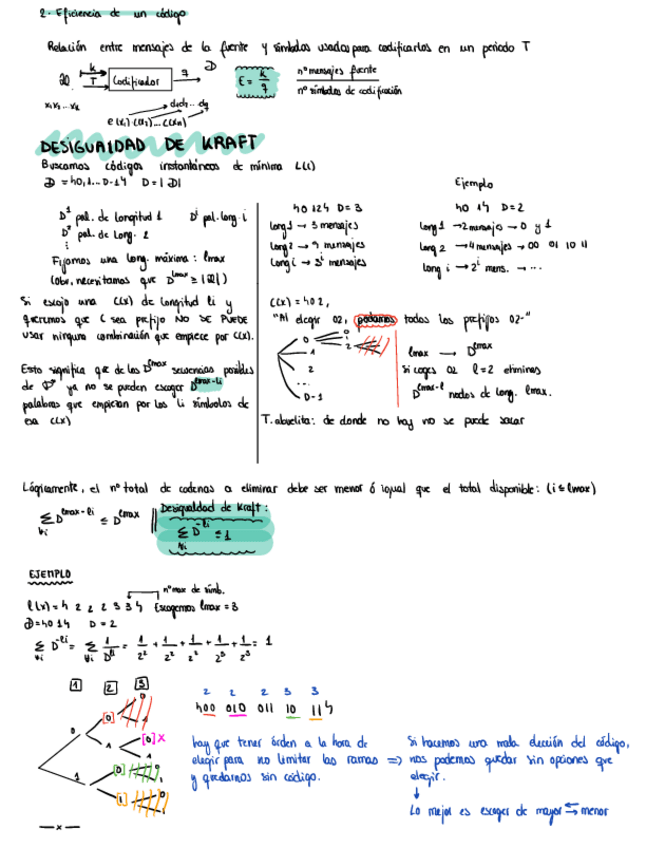 2. Eficiencia de un código
Relación entre mensajes de la fuente y símbolos usados para codificarlos en un periodo T
k
T
Codificador
q
D
E = k/q
nº mensajes fuente
nº símbolos de codificación
x₁x₂ ... xₖ
d₁d₂ ... dq
DESIGUALDAD DE KRAFT
Buscamos códigos instantáneos de mínima L(C)
D = {0,1... D-1} D = |D|
D¹ pal. de longitud 1 Dⁱ pal. long. i
D² pal. de long. 2
⋮
Fijamos una long. máxima: lmax
(obv, necesitamos que D^lmax ≥ |X|)
Si escojo una C(x) de longitud li y
queremos que C sea prefijo NO SE PUEDE
usar ninguna combinación que empiece por C(x).
Esto significa que de las D^lmax secuencias posibles
de D ya no se pueden escoger D^lmax-li
palabras que empiezan por los li símbolos de
esa C(x)
Ejemplo
{0 1 2} D = 3
Long 1 → 3 mensajes
Long 2 → 9 mensajes
Long i → 3ⁱ mensajes
{0 1} D = 2
Long 1 → 2 mensajes → 0 y 1
Long 2 → 4 mensajes → 00 01 10 11
Long i → 2ⁱ mens. → ...
C(x) = {02,
"Al elegir 02, podamos todos los prefijos 02-"
0
1
2
...
D-1
0
1
2
lmax → D^lmax
Si coges 02 l = 2 eliminas
D^lmax-l nodos de long. lmax.
T. abuelita: de donde no hay no se puede sacar
Lógicamente, el nº total de cadenas a eliminar debe ser menor ó igual que el total disponible: (i ≤ lmax)
∑ D^lmax-li ≤ D^lmax
∀i
Desigualdad de Kraft:
∑ D^-li ≤ 1
∀i
EJEMPLO
nº max de símb.
l(x) = { 2 2 2 3 3 } Escogemos lmax = 3
D = {0 1} D = 2
∑ D^-li = ∑ 1/D^li = 1/2² + 1/2² + 1/2² + 1/2³ + 1/2³ = 1
∀i ∀i
1 2 3
0
1
[0]
1
[0]
[1]
0
1
[0] x
1
2 2 2 3 3
{00 010 011 10 11}
hay que tener órden a la hora de
elegir para no limitar las ramas =>
y quedarnos sin código.
Si hacemos una mala elección del código,
nos podemos quedar sin opciones que
elegir.
↓
Lo mejor es escoger de mayor ⇆ menor
— x —